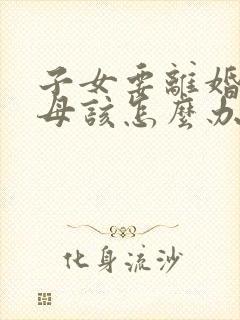 子女要離婚
母該怎麼办
化身流沙